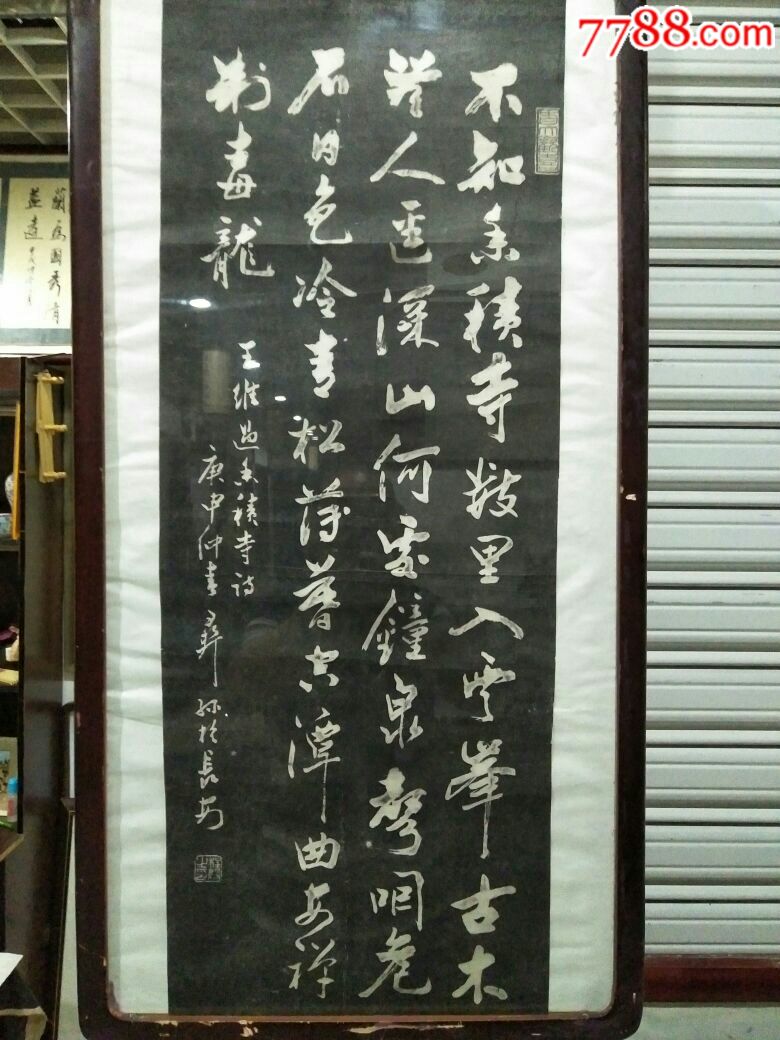 7788.com
不知香積寺數里入雲峯古木
無人徑深山何處鐘泉聲咽危
石日色冷青松薄暮空潭曲安禪
制毒龍
王維過香積寺詩
庚申仲春 於長安
益遠